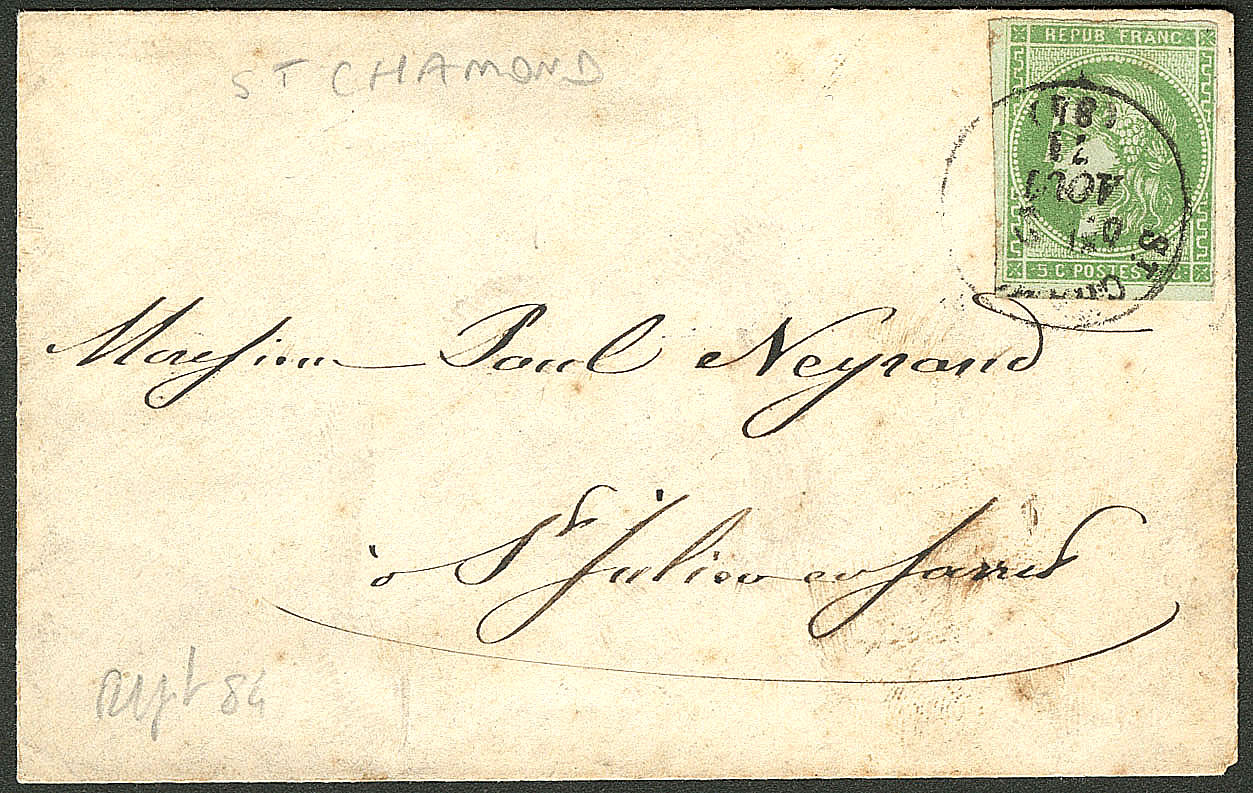 ST CHAMOND
REPUB FRANC
(81)
71
AOUT
ST CHAM
5 C POSTES 5 C
Monsieur Paul Neyrand
à St Julien en Jarret
84